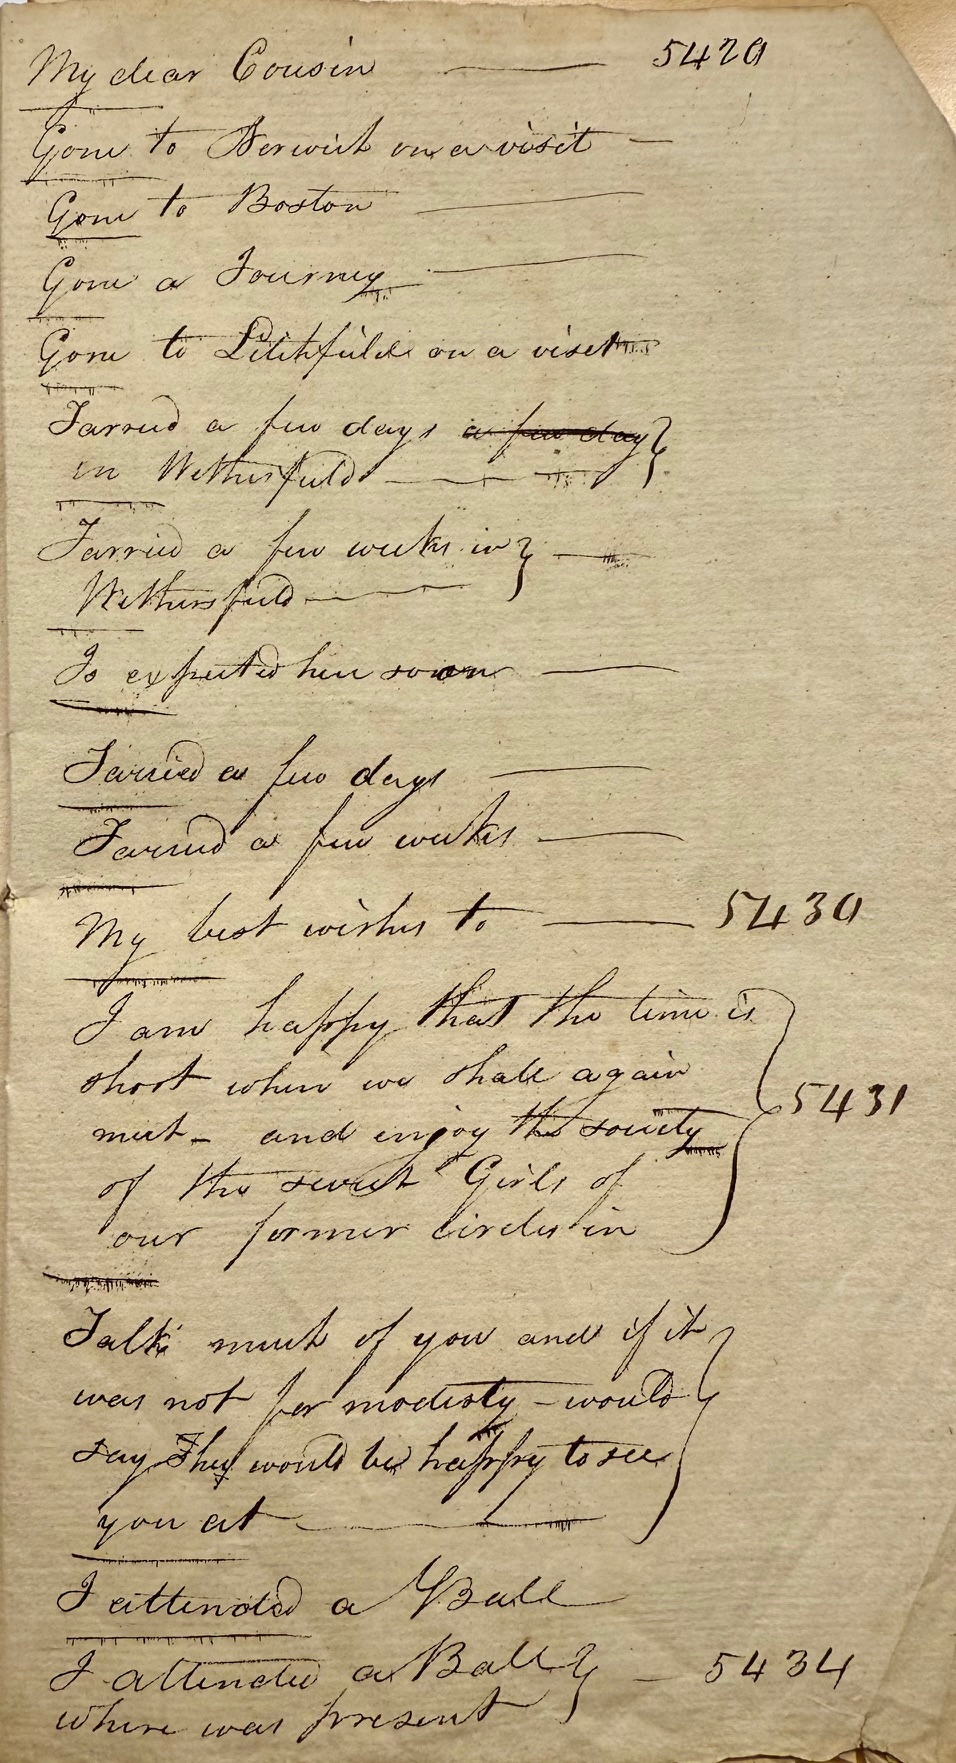 My dear Cousin — 5420
Gone to Norwich on a visit —
Gone to Boston —
Gone a Journey —
Gone to Litchfield on a visit
Tarried a few days a few day }
in Wethersfield —
Tarried a few weeks in } —
Wethersfield —
Is expected here soon —
Tarried a few days —
Tarried a few weeks —
My best wishes to — 5430
I am happy that the time is
short when we shall again
meet - and enjoy the society } 5431
of the sweet Girls of
our former circles in
Talks much of you and if it
was not for modesty - would
say They would be happy to see }
you at —
I attended a Ball
I attended a Ball } — 5434
where was present